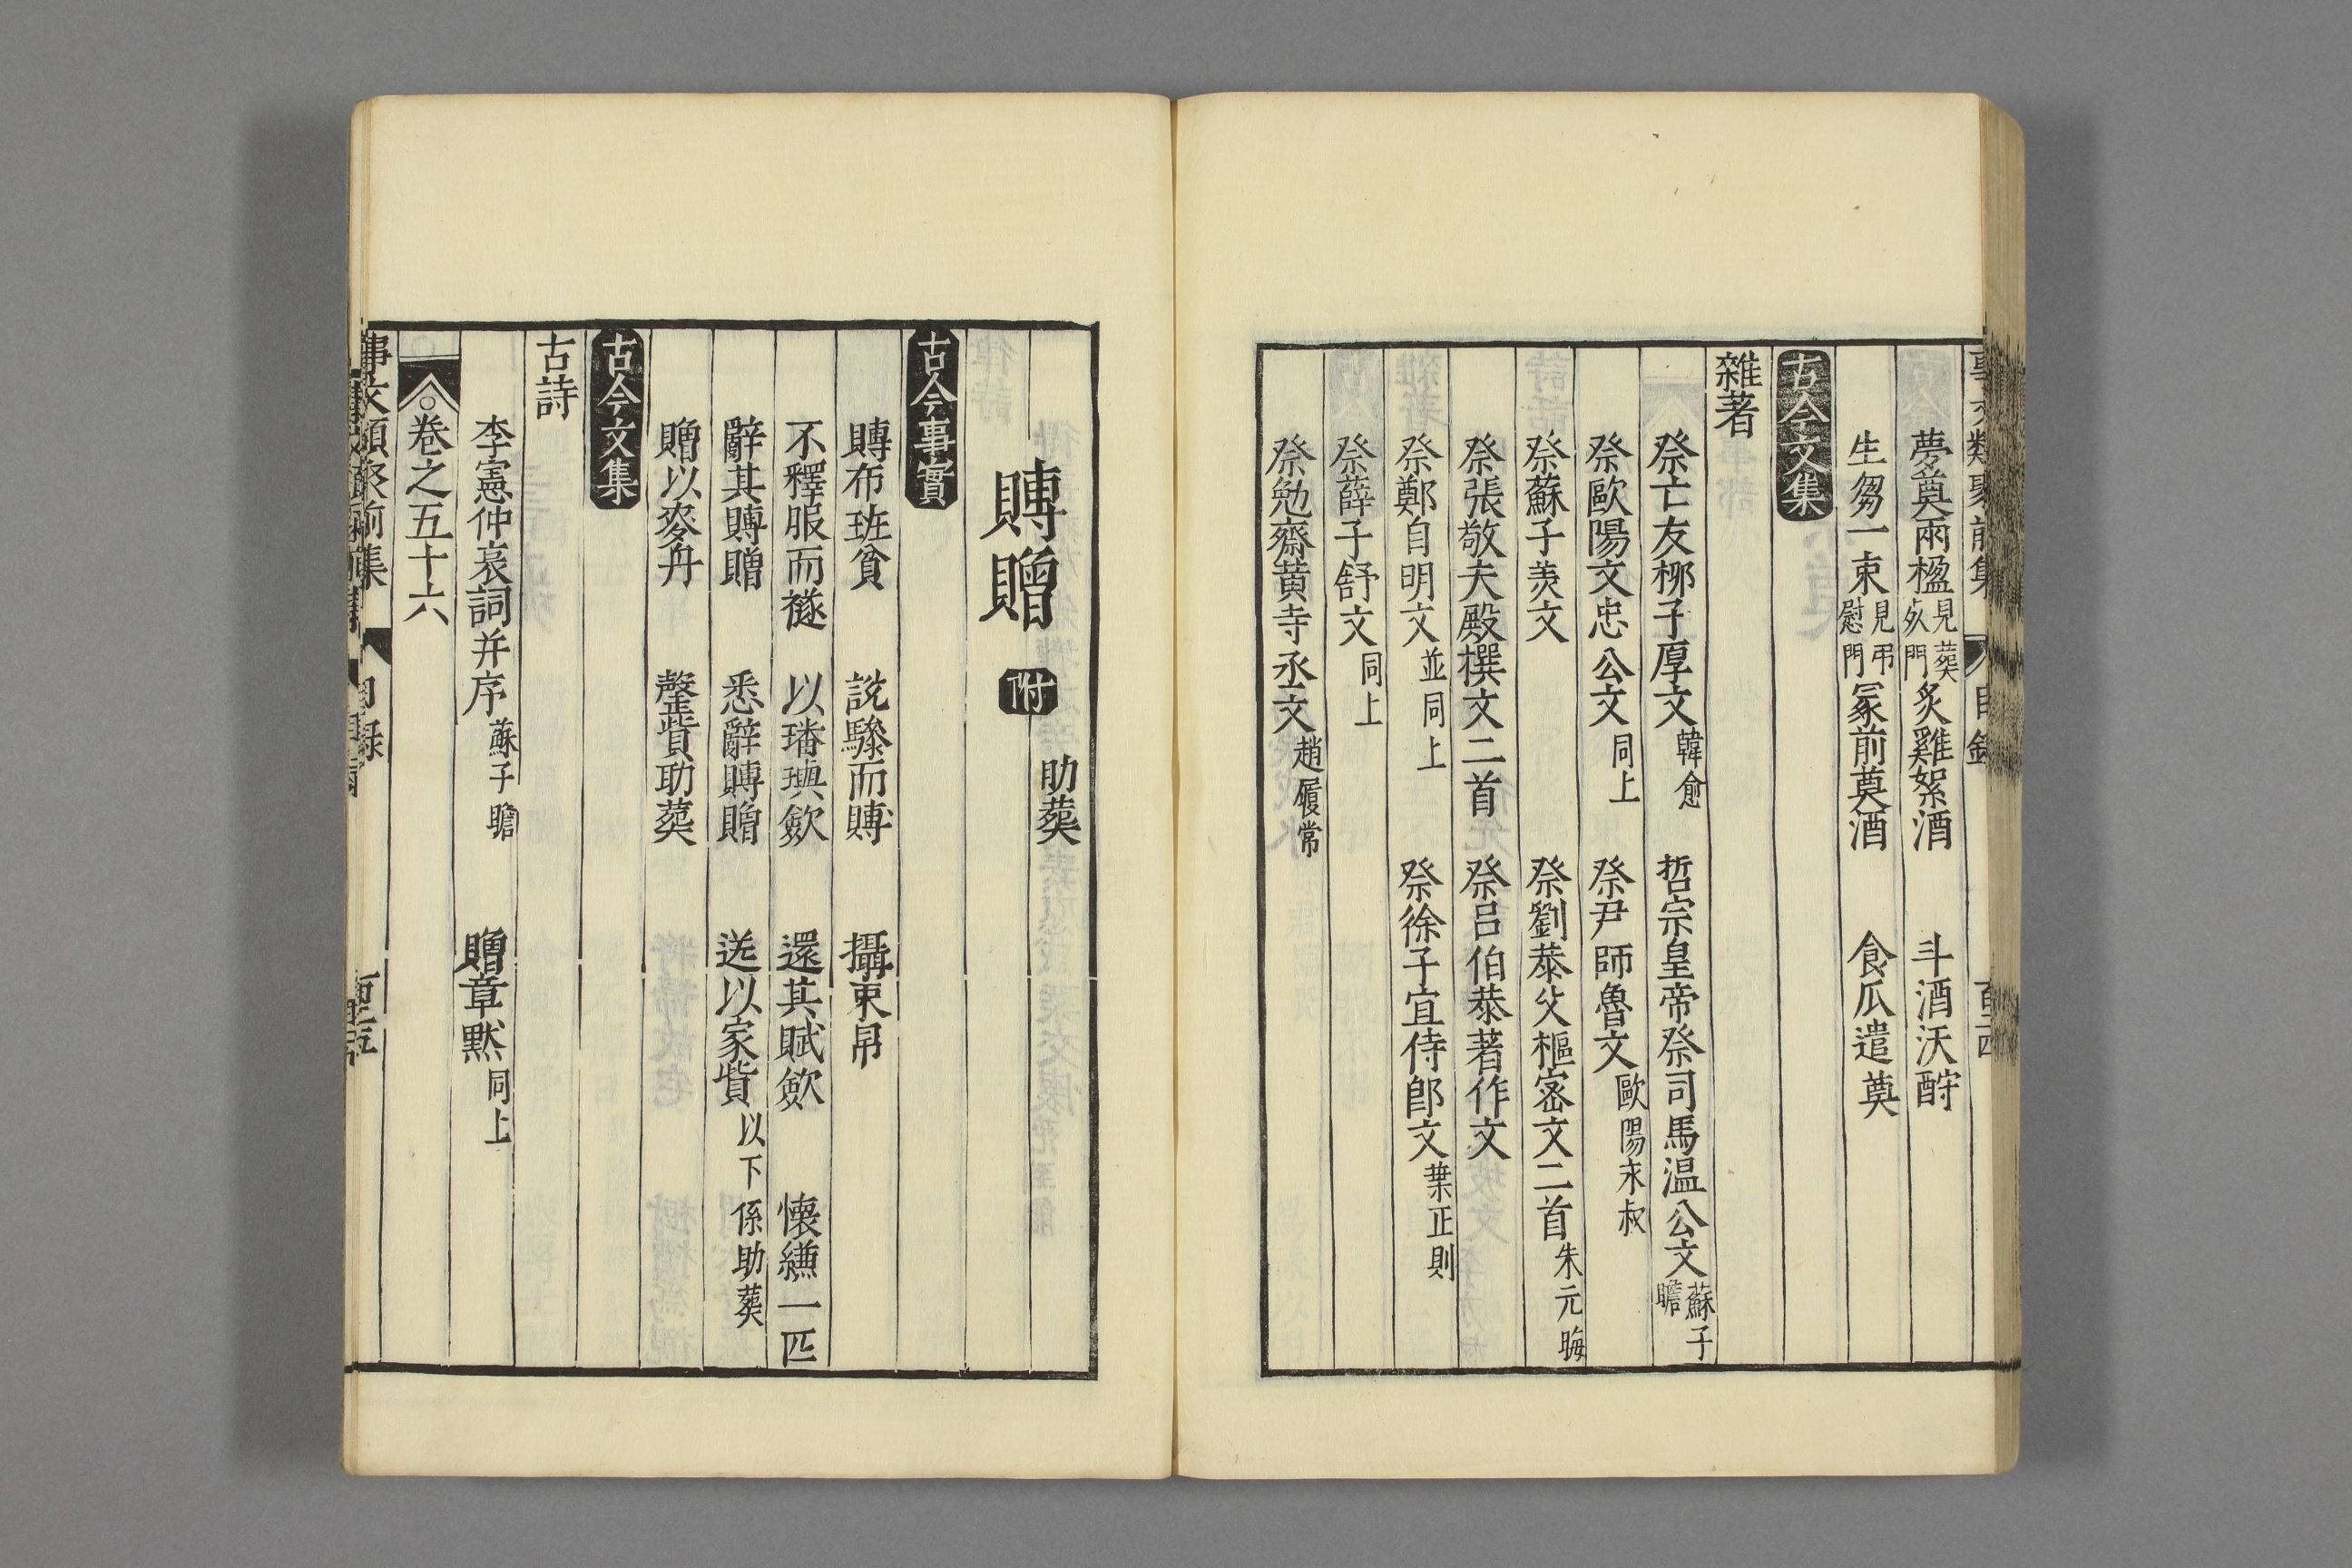 夢奠兩楹見葬死門　炙雞絮酒　斗酒沃酹
生芻一束見弔慰門　冢前奠酒　食瓜遣奠
古今文集
雜著
祭亡友桞子厚文韓愈　哲宗皇帝祭司馬温公文蘇子瞻
祭歐陽文忠公文同上　祭尹師魯文歐陽永叔
祭蘇子美文　祭劉恭父樞宻文二首朱元晦
祭張敬夫殿撰文二首　祭呂伯恭著作文
祭鄭自明文並同上　祭徐子宜侍郎文葉正則
祭薛子舒文同上
祭勉齋黄寺丞文趙履常
助葬
賻贈附
古今事實
賻布班貧　説驂而賻　攝束帛
不釋服而襚　以璠璵斂　還其賦斂　懷縑一匹
辭其賻贈　悉辭賻贈　送以家貲以下係助葬
贈以麥舟　罄貲助葬
古今文集
古詩
李憲仲哀詞并序蘇子瞻　贈章默同上
○卷之五十六